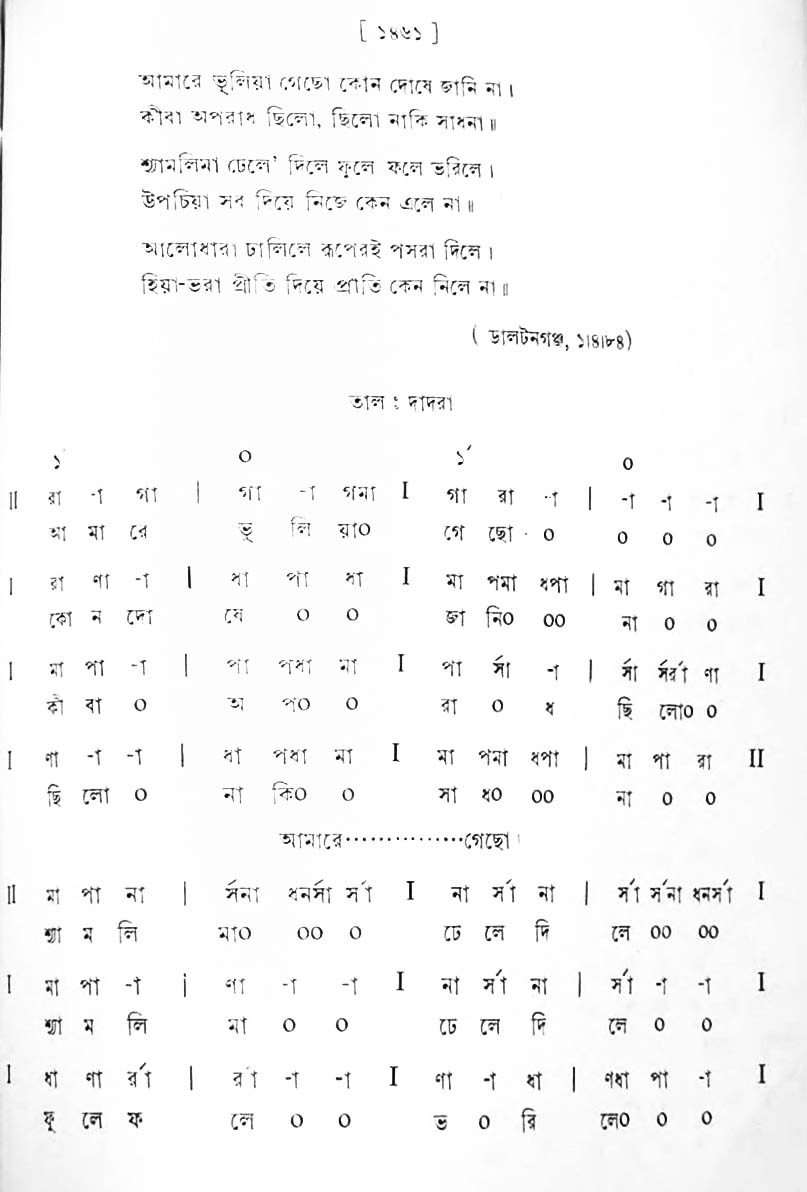 [ ১৪৬১ ]
আমারে ভূলিয়া গেছো কোন দোষে জানি না।
কীবা অপরাধ ছিলো, ছিলো নাকি সাধনা॥
শ্যামলিমা ঢেলে' দিলে ফুলে ফলে ভরিলে।
উপচিয়া সব দিয়ে নিজে কেন এলে না॥
আলোধারা ঢালিলে রূপেরই পসরা দিলে।
হিয়া-ভরা প্রীতি দিয়ে প্রীতি কেন নিলে না॥
( ডালটনগঞ্জ, ১।৪।৮৪)
তাল : দাদরা
১´ ০ ১´ ০
II রা -া গা | গা -া গমা I গা রা -া | -া -া -া I
আ মা রে ভূ লি য়া০ গে ছো ০ ০ ০ ০
I রা ণা -া | ধা পা ধা I মা পমা ধপা | মা গা রা I
কো ন দো ষে ০ ০ জা নি০ ০০ না ০ ০
I মা পা -া | পা পধা মা I পা র্সা -া | র্সা র্সর্রা ণা I
কী বা ০ অ প০ ০ রা ০ ধ ছি লো০ ০
I ণা -া -া | ধা পধা মা I মা পমা ধপা | মা পা রা II
ছি লো ০ না কি০ ০ সা ধ০ ০০ না ০ ০
আমারে···············গেছো।
II মা পা না | র্সনা ধনর্সা র্সা I না র্সা না | র্সা র্সনা ধনর্সা I
শ্যা ম লি মা০ ০০ ০ ঢে লে দি লে ০০ ০০
I মা পা -া | ণা -া -া I না র্সা না | র্সা -া -া I
শ্যা ম লি মা ০ ০ ঢে লে দি লে ০ ০
I ধা ণা র্রা | র্রা -া -া I ণা -া ধা | ণধা পা -া I
ফু লে ফ লে ০ ০ ভ ০ রি লে০ ০ ০